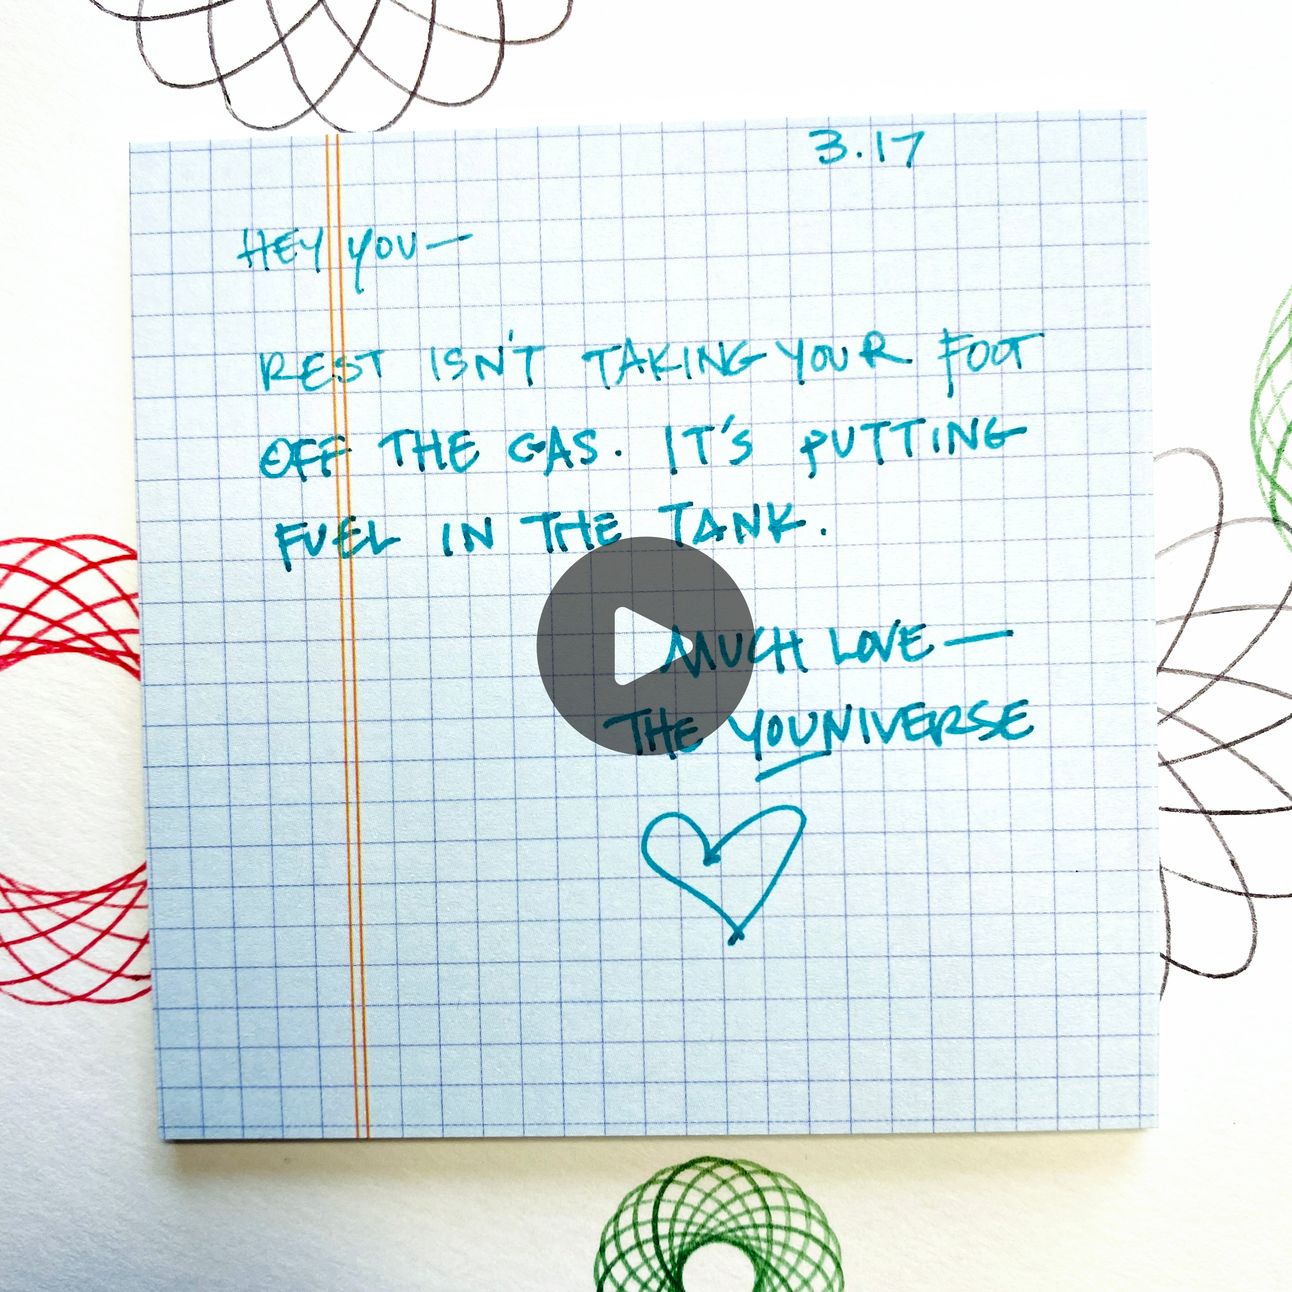 3.17
HEY YOU—
REST ISN'T TAKING YOUR FOOT
OFF THE GAS. IT'S PUTTING
FUEL IN THE TANK.
MUCH LOVE—
THE YOUNIVERSE